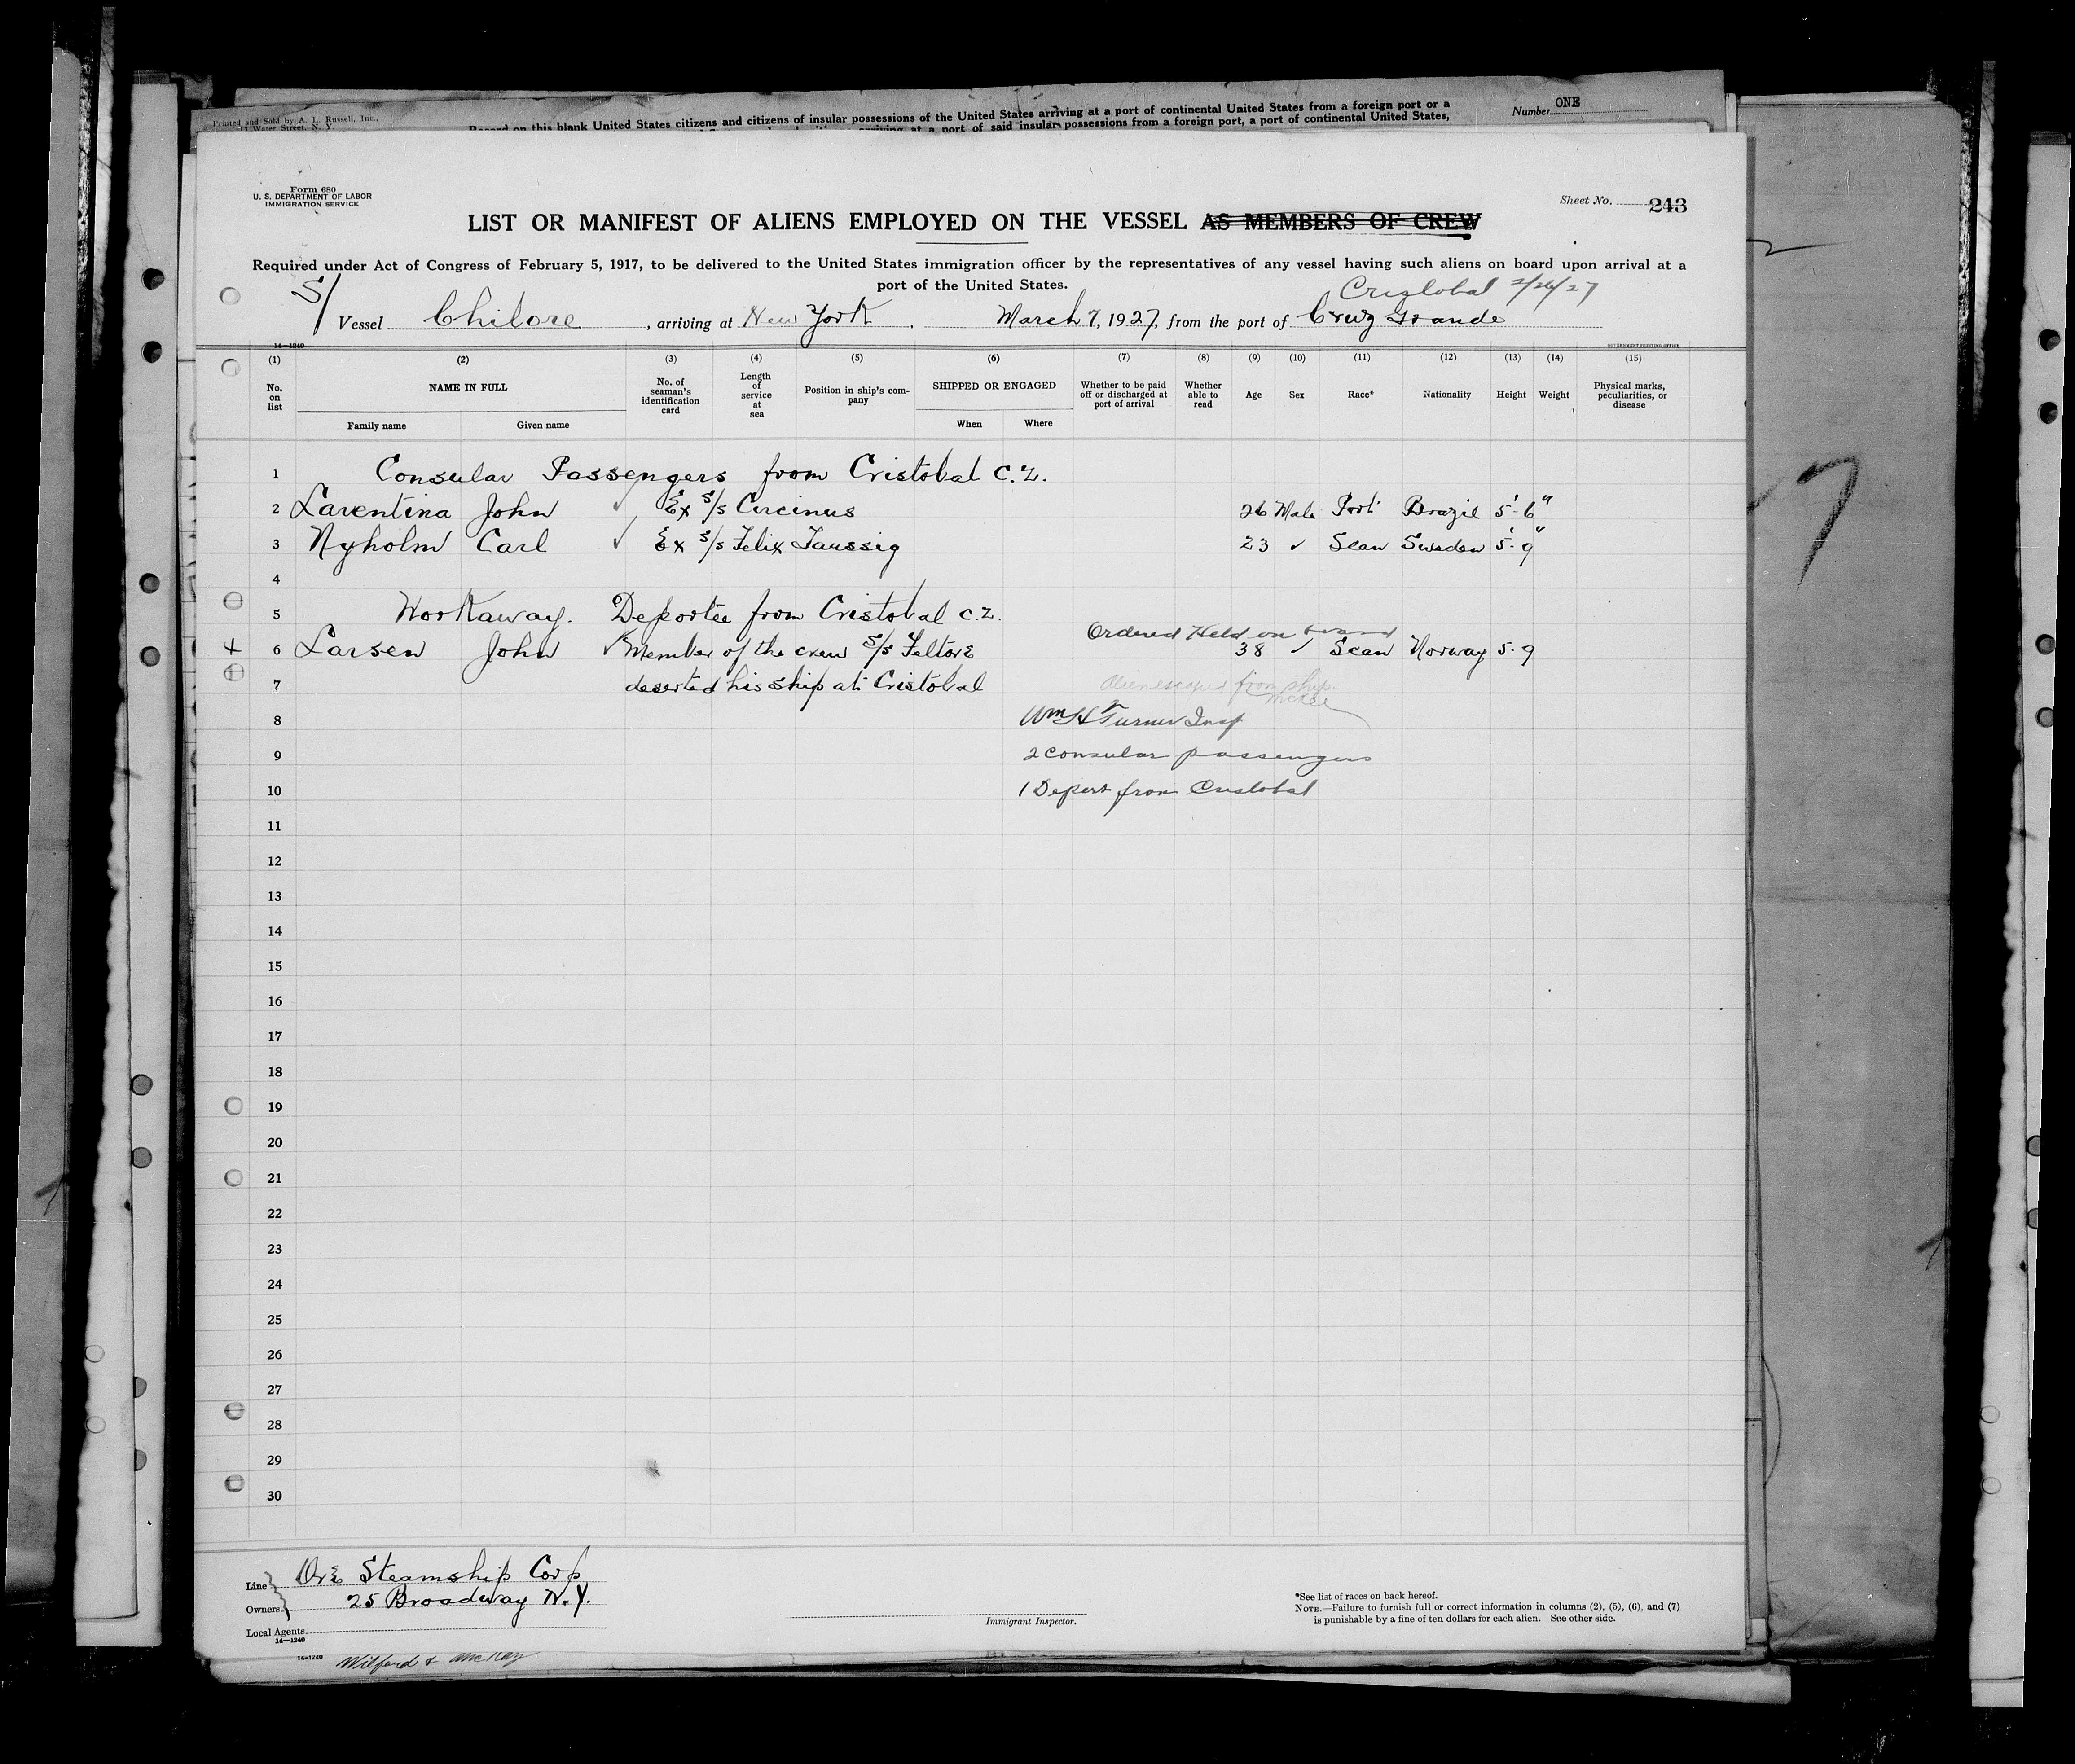 Printed and Sold by A. L. Russell, Inc.,
11 Water Street, N. Y.
Record on this blank United States citizens and citizens of insular possessions of the United States arriving at a port of continental United States from a foreign port or a
at a port of said insular possessions from a foreign port, a port of continental United States,
Number ONE
Form 680
U. S. DEPARTMENT OF LABOR
IMMIGRATION SERVICE
Sheet No. 243
LIST OR MANIFEST OF ALIENS EMPLOYED ON THE VESSEL AS MEMBERS OF CREW
Required under Act of Congress of February 5, 1917, to be delivered to the United States immigration officer by the representatives of any vessel having such aliens on board upon arrival at a
port of the United States.
Cristobal 2/26/27
S/ Vessel Chilore, arriving at New York, March 7, 1927, from the port of Cruz Grande
14—1240
GOVERNMENT PRINTING OFFICE
(1) (2) (3) (4) (5) (6) (7) (8) (9) (10) (11) (12) (13) (14) (15)
No. on list
NAME IN FULL
Family name
Given name
No. of seaman's identification card
Length of service at sea
Position in ship's company
SHIPPED OR ENGAGED
When
Where
Whether to be paid off or discharged at port of arrival
Whether able to read
Age
Sex
Race*
Nationality
Height
Weight
Physical marks, peculiarities, or disease
1 Consular Passengers from Cristobal C.Z.
2 Larentina John ✓ Ex S/s Circinus 26 Male Port. Brazil 5'-6"
3 Nyholm Carl ✓ Ex S/s Felix Taussig 23 ✓ Scan Sweden 5'-9"
4
5 Workaway. Deportee from Cristobal C.Z.
Ordered Held on board
+ 6 Larsen John ✓ Member of the crew S/s Feltore 38 ✓ Scan Norway 5-9
7 deserted his ship at Cristobal Alien escaped from ship.
McKee
8 Wm H Turner Insp
9 2 consular passengers
10 1 Deport from Cristobal
11
12
13
14
15
16
17
18
19
20
21
22
23
24
25
26
27
28
29
30
Line Ore Steamship Corp
Owners 25 Broadway N.Y.
Local Agents
14—1240
Immigrant Inspector.
*See list of races on back hereof.
NOTE.—Failure to furnish full or correct information in columns (2), (5), (6), and (7)
is punishable by a fine of ten dollars for each alien. See other side.
14-1240
Wilford & McKay